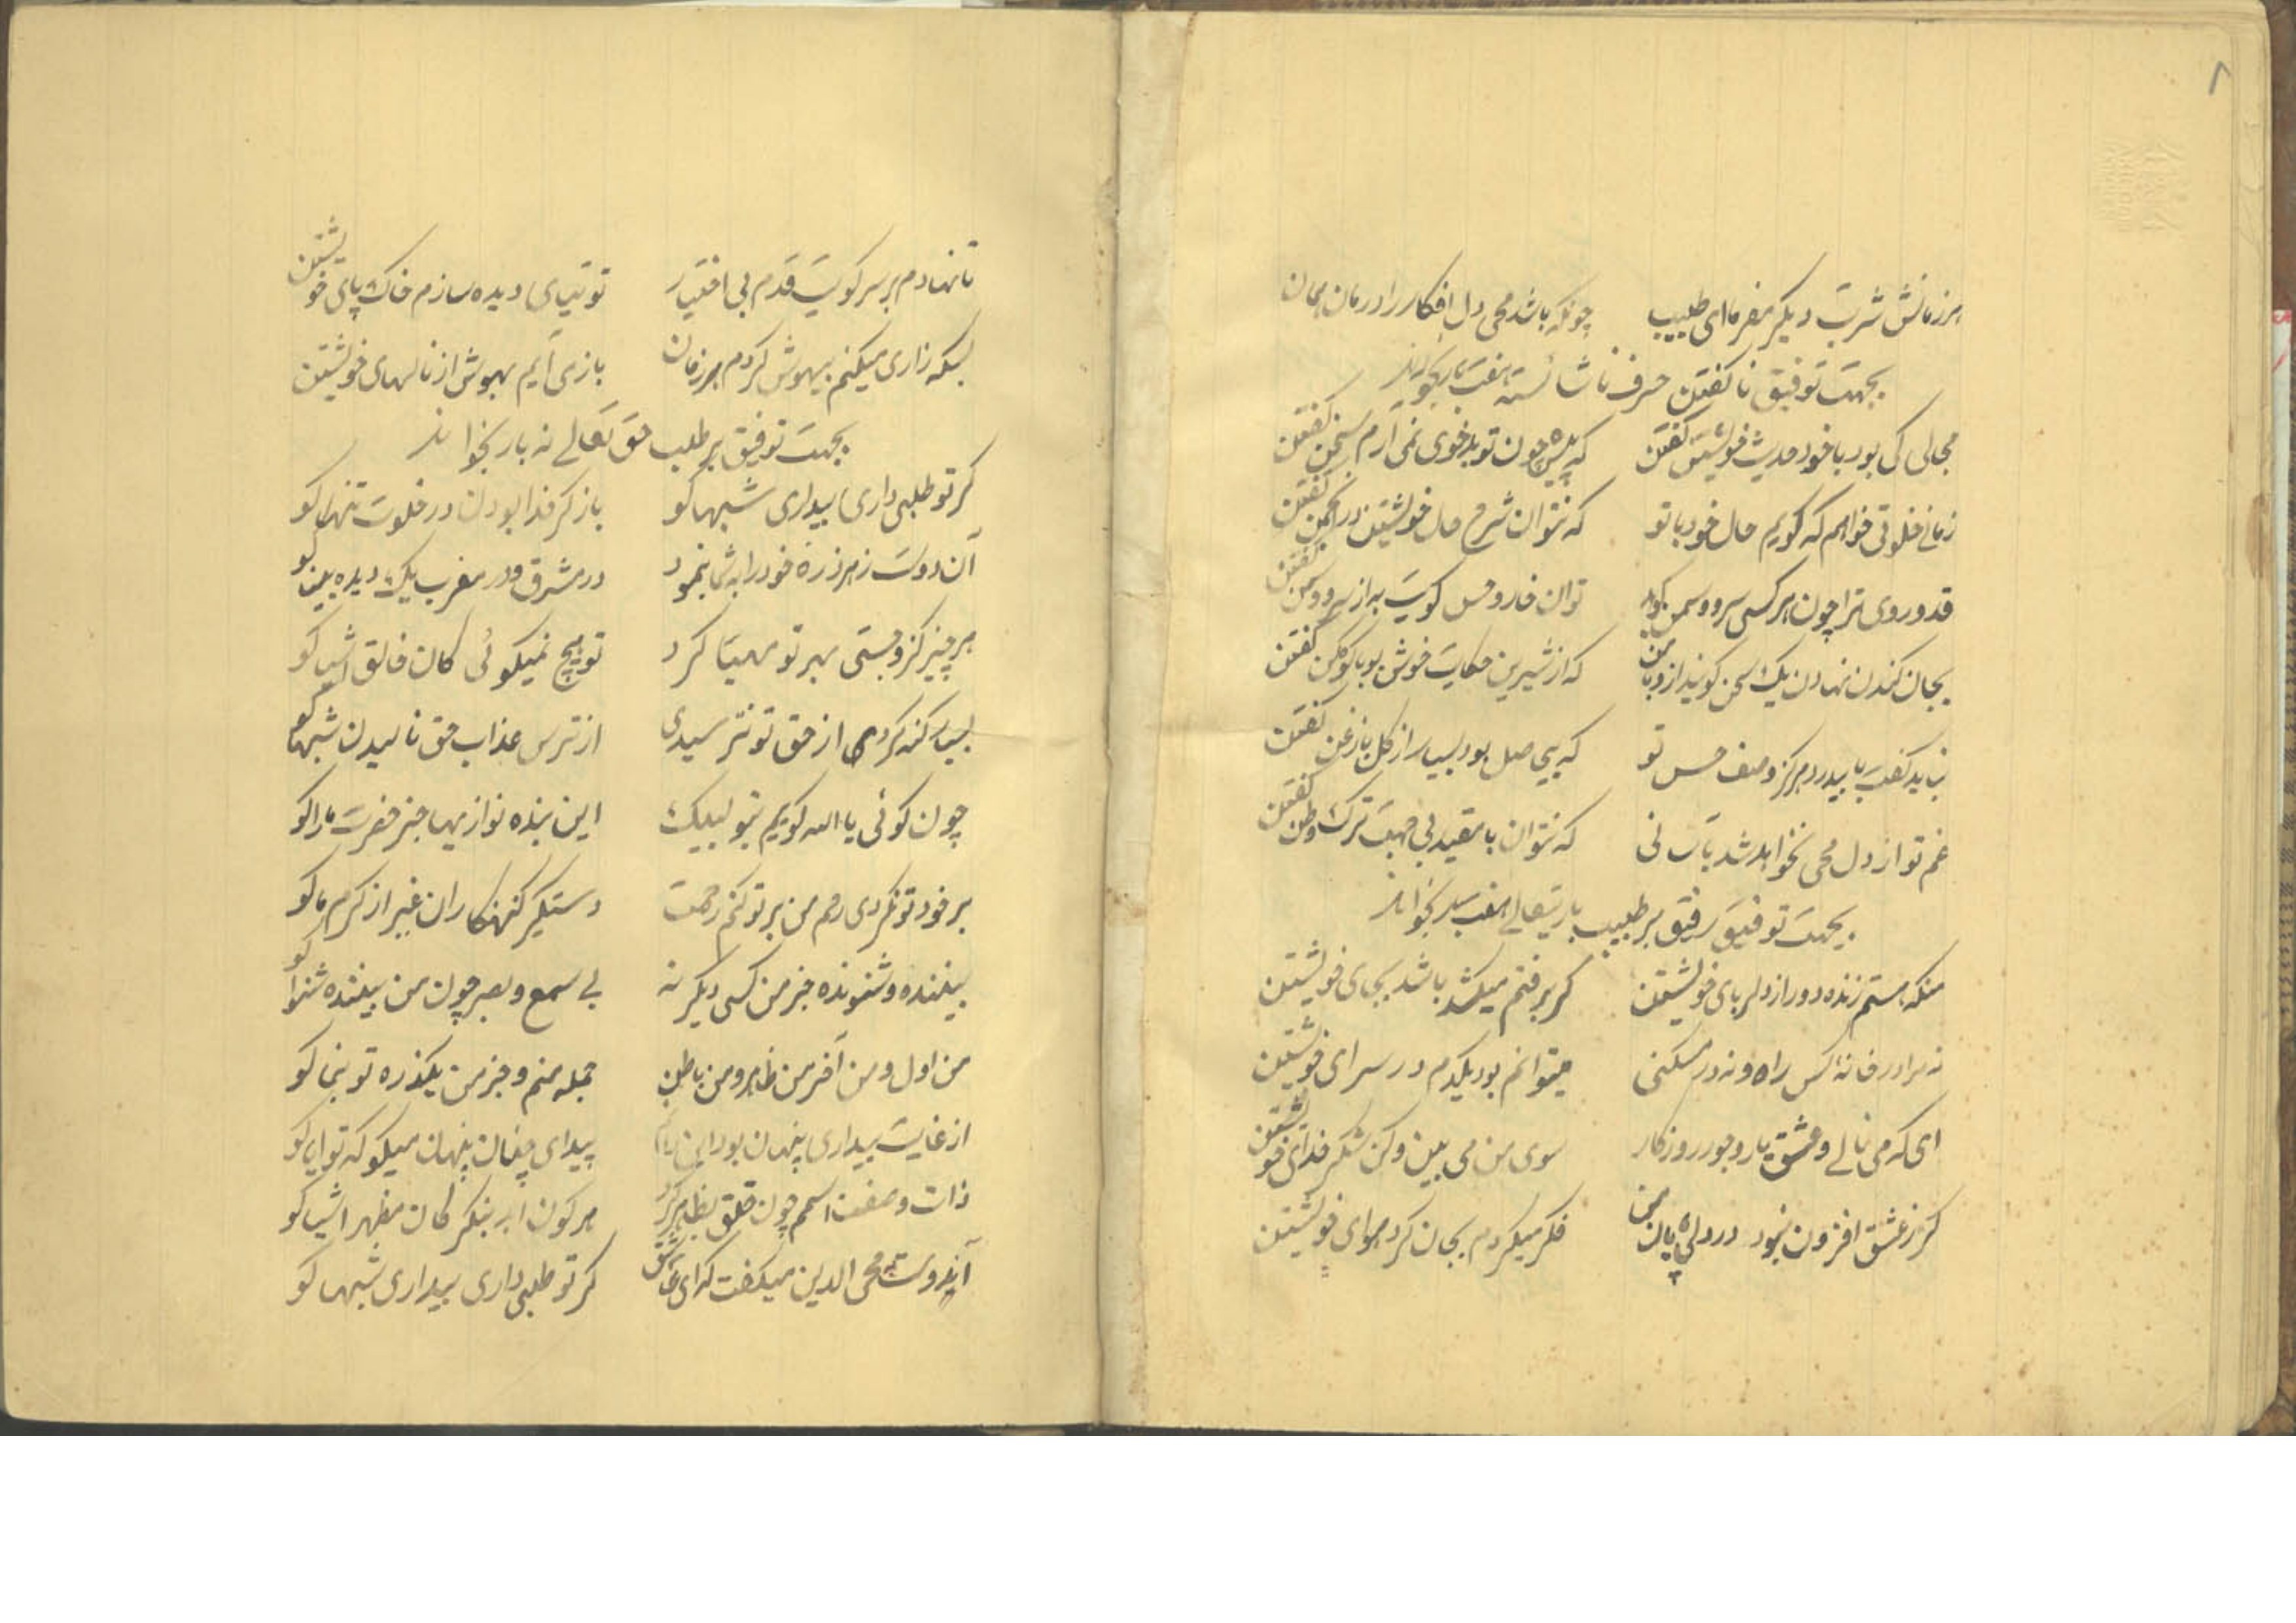 ۸
هر زمانش شربت دیگر مفرمای طبیب چونکه باشد محی دل افکار را درمان همان
بجهت توفیق ناگفتن حرف ناشائسته هفت بار بخواند
مجالی کی بود با خود حدیث خویشتن گفتن که پیش چون تو بدخوی نمی آرم سخن گفتن
زمانی خلوتی خواهم که گویم حال خود با تو که نتوان شرح حال خویشتن در انجمن گفتن
قد و روی ترا چون هر کسی سرو و سمن گوید توان خار و خس کویت به از سرو و سمن گفتن
بجان کندن نهادن یک سخن گویند از که از شیرین حکایت خوش بود با کوهکن گفتن
نباید گفت با بیدرد هرگز وصف حسن تو که بی حاصل بود بسیار از گل با زغن گفتن
غم تو از دل محی نخواهد شد بآسانی که نتوان با مقید بی جهت ترک وطن گفتن
بجهت توفیق رفیق بر طلب باریتعالی هفت بار بخواند
منکه هستم زنده دور از دلربای خویشتن گر برفتم میکشد باشد بجای خویشتن
نه مرا در خانهٔ کس راه و نه در مسکنی میتوانم بود یکدم در سرای خویشتن
ای که می نالی و عشق یار و جور روزگار سوی من می بین و کن شکر خدای خویشتن
گر ز عشق افزون نبود درد بی پایان من فکر میکردم بجان کرد هوای خویشتن
تا نهادم بر سر کویت قدم بی اختیار توتیای دیده سازم خاک پای خویشتن
بسکه زاری میکنم بیهوش گردم هر زمان بازمی آیم بهوش از نالهای خویشتن
بجهت توفیق بر طلب حق تعالی نه بار بخواند
گر تو طلبی داری بیداری شبها کو باز کر خدا بودن در خلوت تنها کو
آن دوست ز هر ذره خود را به شما بنمود در مشرق و در مغرب یک دیده بینا کو
هر چیز کزو جستی بهر تو مهیّا کرد تو هیچ نمیگوئی کان خالق اشیا کو
بسیار گنه کردی از حق تو نترسیدی از ترس عذاب حق نالیدن شبها کو
چون گوئی یا الله گویم بتو لبیک این بنده نوازیها جز حضرت ما را کو
بر خود تو نکردی رحم من بر تو کنم رحمت دستگیر گنهکاران غیر از کرم ما کو
بیننده و شنونده جز من کسی دیگر نه بی سمع و بصر چون من بیننده شنوا کو
من اول و من آخر من ظاهر و من باطن جمله منم و جز من یکذره تو بنما کو
از غایت پیداری پنهان بود این پیدای چنان پنهان میگو که تو ای کو
ذات و صفت اسمم چون خلق بظاهر کرد هر کون ابر بنگر کان مظهر اشیا کو
آندوست محی الدین میگفت که ای عاشق گر تو طلبی داری بیداری شبها کو